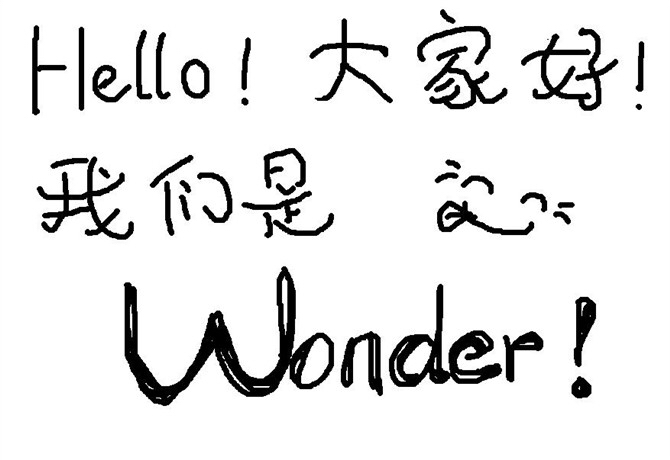 Hello! 大家好!
我们是
Wonder!